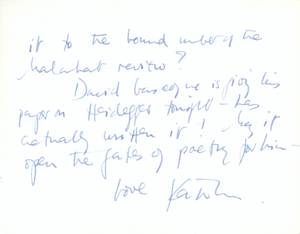 it to the bound number of the
Malahat review?
David Gascoyne is giving his
paper on Heidegger tonight – has
actually written it! May it
open the gates of poetry for him –
love Kathleen